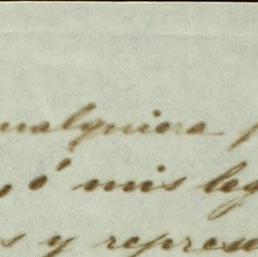 ualquiera
ó mis leg
s y represe